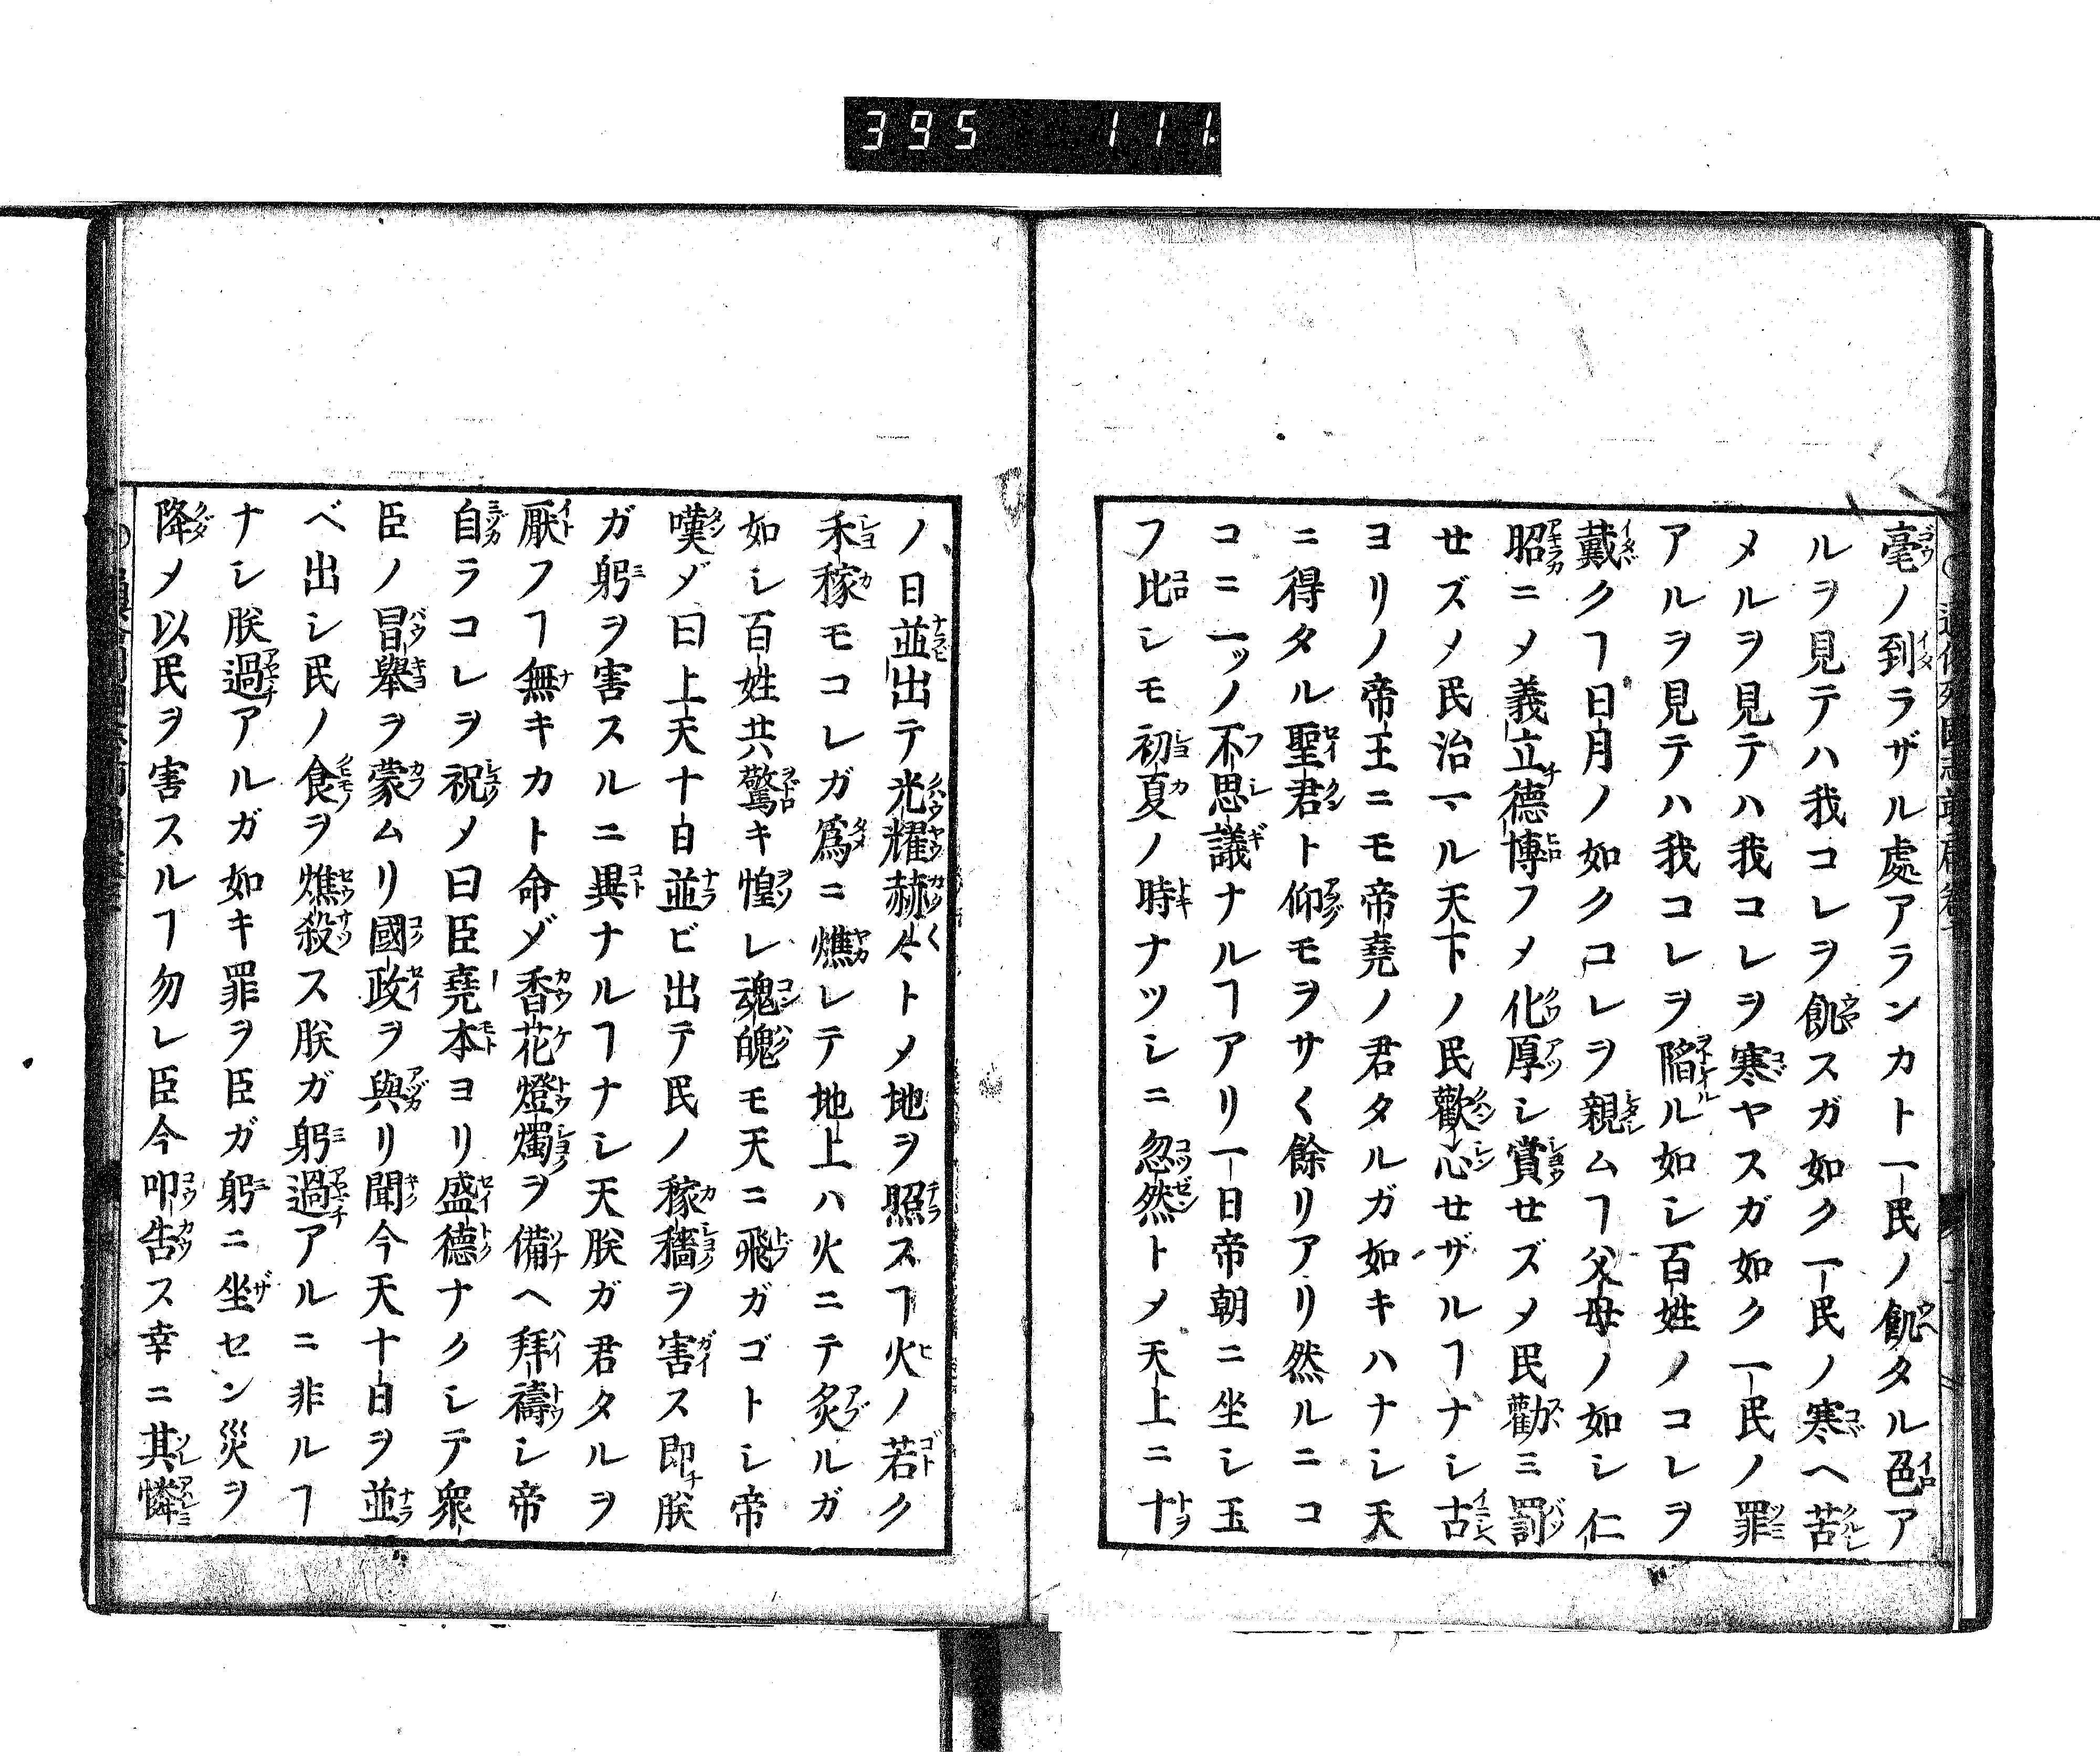 395 111
毫ノ到ラザル處アランカト一民ノ飢タル色ア
ルヲ見テハ我コレヲ飢スガ如ク一民ノ寒ヘ苦
メルヲ見テハ我コレヲ寒ヤスガ如ク一民ノ罪
アルヲ見テハ我コレヲ陷ル如シ百姓ノコレヲ
戴クヿ日月ノ如クコレヲ親ムヿ父母ノ如シ仁
昭ニメ義立德博フメ化厚シ賞せズメ民勸ミ罰
せズメ民治マル天下ノ民歡心せザルヿナシ古
ヨリノ帝王ニモ帝堯ノ君タルガ如キハナシ天
ニ得タル聖君ト仰モヲサく餘リアリ然ルニコ
コニ一ツノ不思議ナルヿアリ一日帝朝ニ坐シ玉
フ比シモ初夏ノ時ナツシニ忽然トメ天上ニ十
ノ日並出テ光耀赫々トメ地ヲ照スヿ火ノ若ク
禾稼モコレガ爲ニ燋レテ地上ハ火ニテ炙ルガ
如シ百姓共驚キ惶レ魂魄モ天ニ飛ガゴトシ帝
嘆ダ曰上天十日並ビ出テ民ノ稼穡ヲ害ス即朕
ガ躬ヲ害スルニ異ナルヿナシ天朕ガ君タルヲ
厭フヿ無キカト命ダ香花燈燭ヲ備ヘ拜禱シ帝
自ラコレヲ祝メ曰臣堯本ヨリ盛德ナクシテ衆
臣ノ冒舉ヲ蒙ムリ國政ヲ與リ聞今天十日ヲ並
ベ出シ民ノ食ヲ燋殺ス朕ガ躬過アルニ非ルヿ
ナシ朕過アルガ如キ罪ヲ臣ガ躬ニ坐セン災ヲ
降メ以民ヲ害スルヿ勿レ臣今叩告ス幸ニ其憐